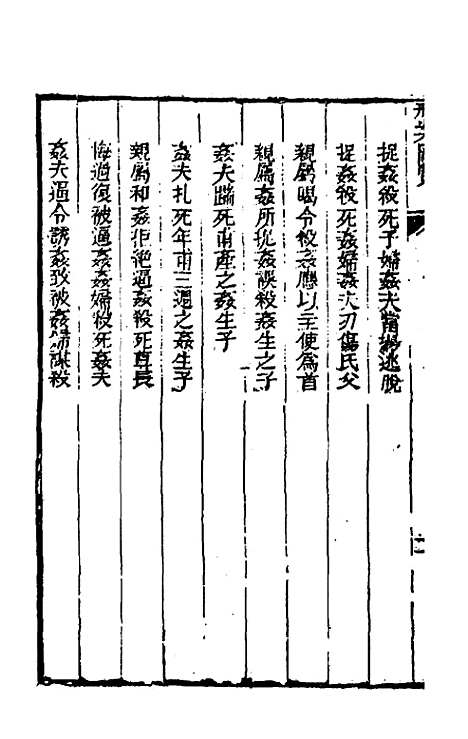 捉姦殺死子婦姦夫當場逃脫
捉姦殺死姦婦姦夫刃傷氏父
親屬喝令殺姦應以主使為首
親屬姦所捉姦誤殺姦生之子
姦夫踹死甫產之姦生子
姦夫扎死年甫三週之姦生子
親屬和姦拒絕逼姦殺死尊長
悔過復被逼姦姦婦殺死姦夫
姦夫逼令誘姦致被姦婦謀殺